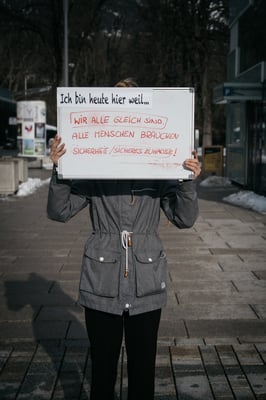 Ich bin heute hier weil...
WIR ALLE GLEICH SIND
ALLE MENSCHEN BRAUCHEN
SICHERHEIT / SICHERES ZUHAUSE!